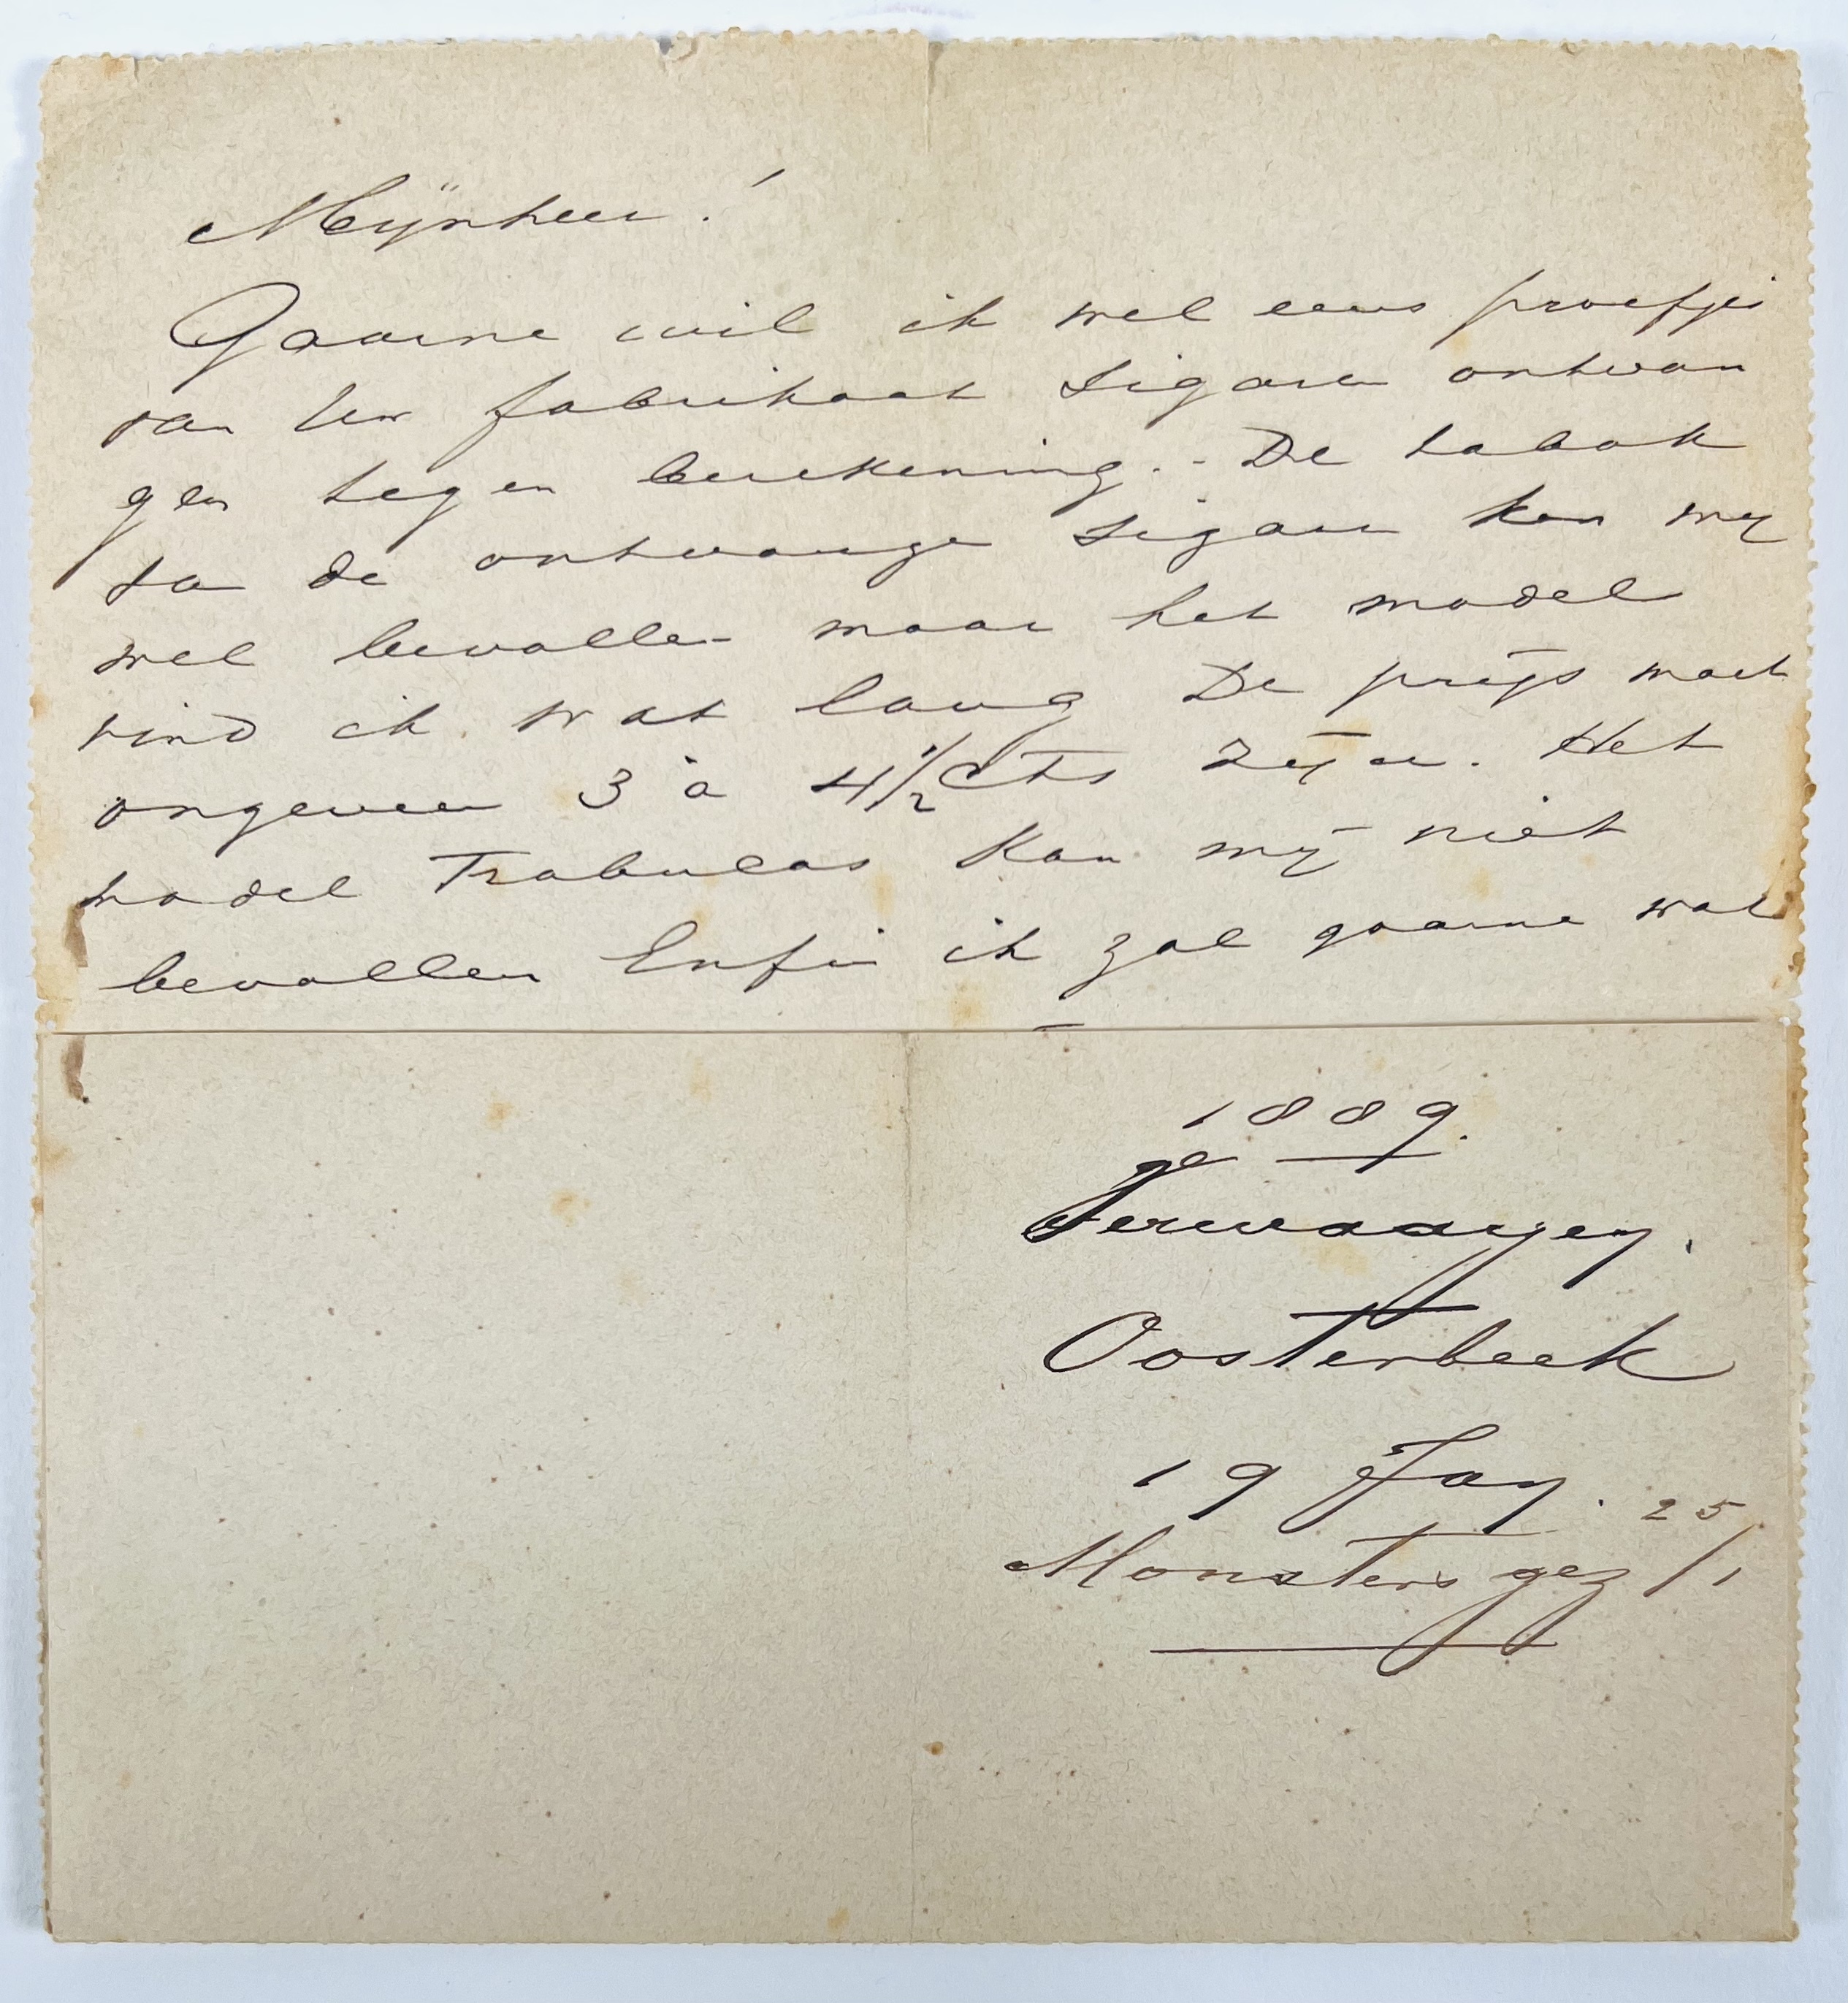 Mijnheer!
Gaarne wil ik wel eens proefjes
van Uw fabrikaat sigaren ontvan
gen tegen berekening. - De tabak
va de ontvange sigaren kan mij
wel bevallen maar het model
vind ik wat lang De prijs moet
ongeveer 3 à 4 1/2 cts zijn. Het
model Trabucas kan mij niet
bevallen Enfin ik zal gaarne wat
1889.
Oosterbeek
19 Jan.
Monsters gez 25/1